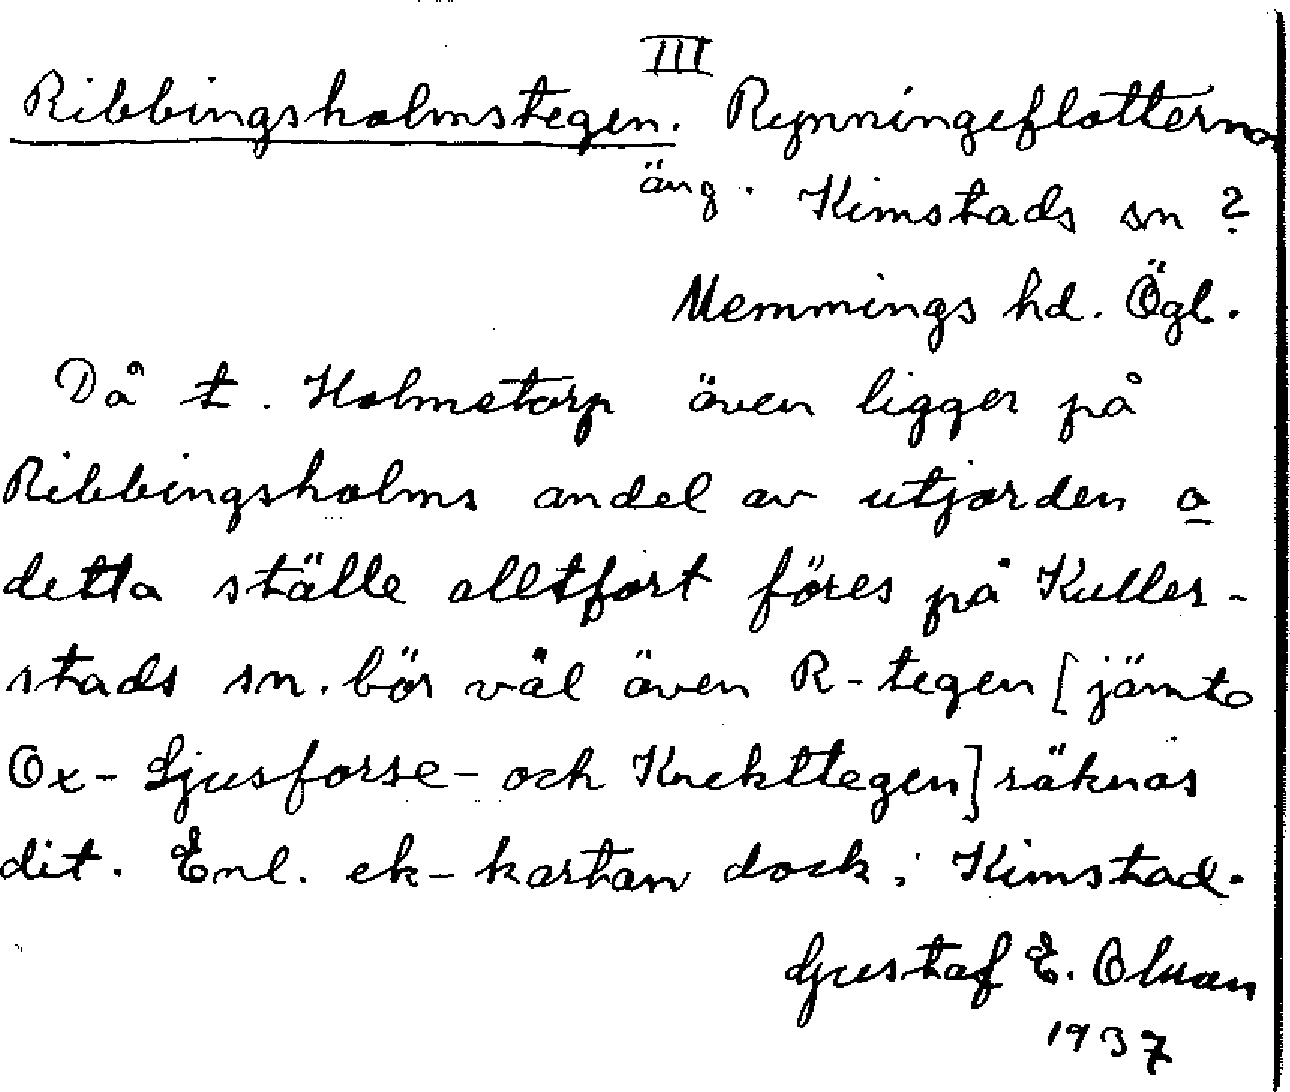 III
Ribbingsholmstegen. Rynningeflotterna
äng. Kimstads sn ?
Memmings hd. Ögl.
Då t. Holmstorp även ligger på
Ribbingsholms andel av utjorden o
detta ställe alltfort föres på Kuller-
stads sn. bör väl även R-tegen [jämte
Ox- Ljusforse- och Knekttegen] räknas
dit. Enl. ek-kartan dock i Kimstad.
Gustaf E. Olsson
1937